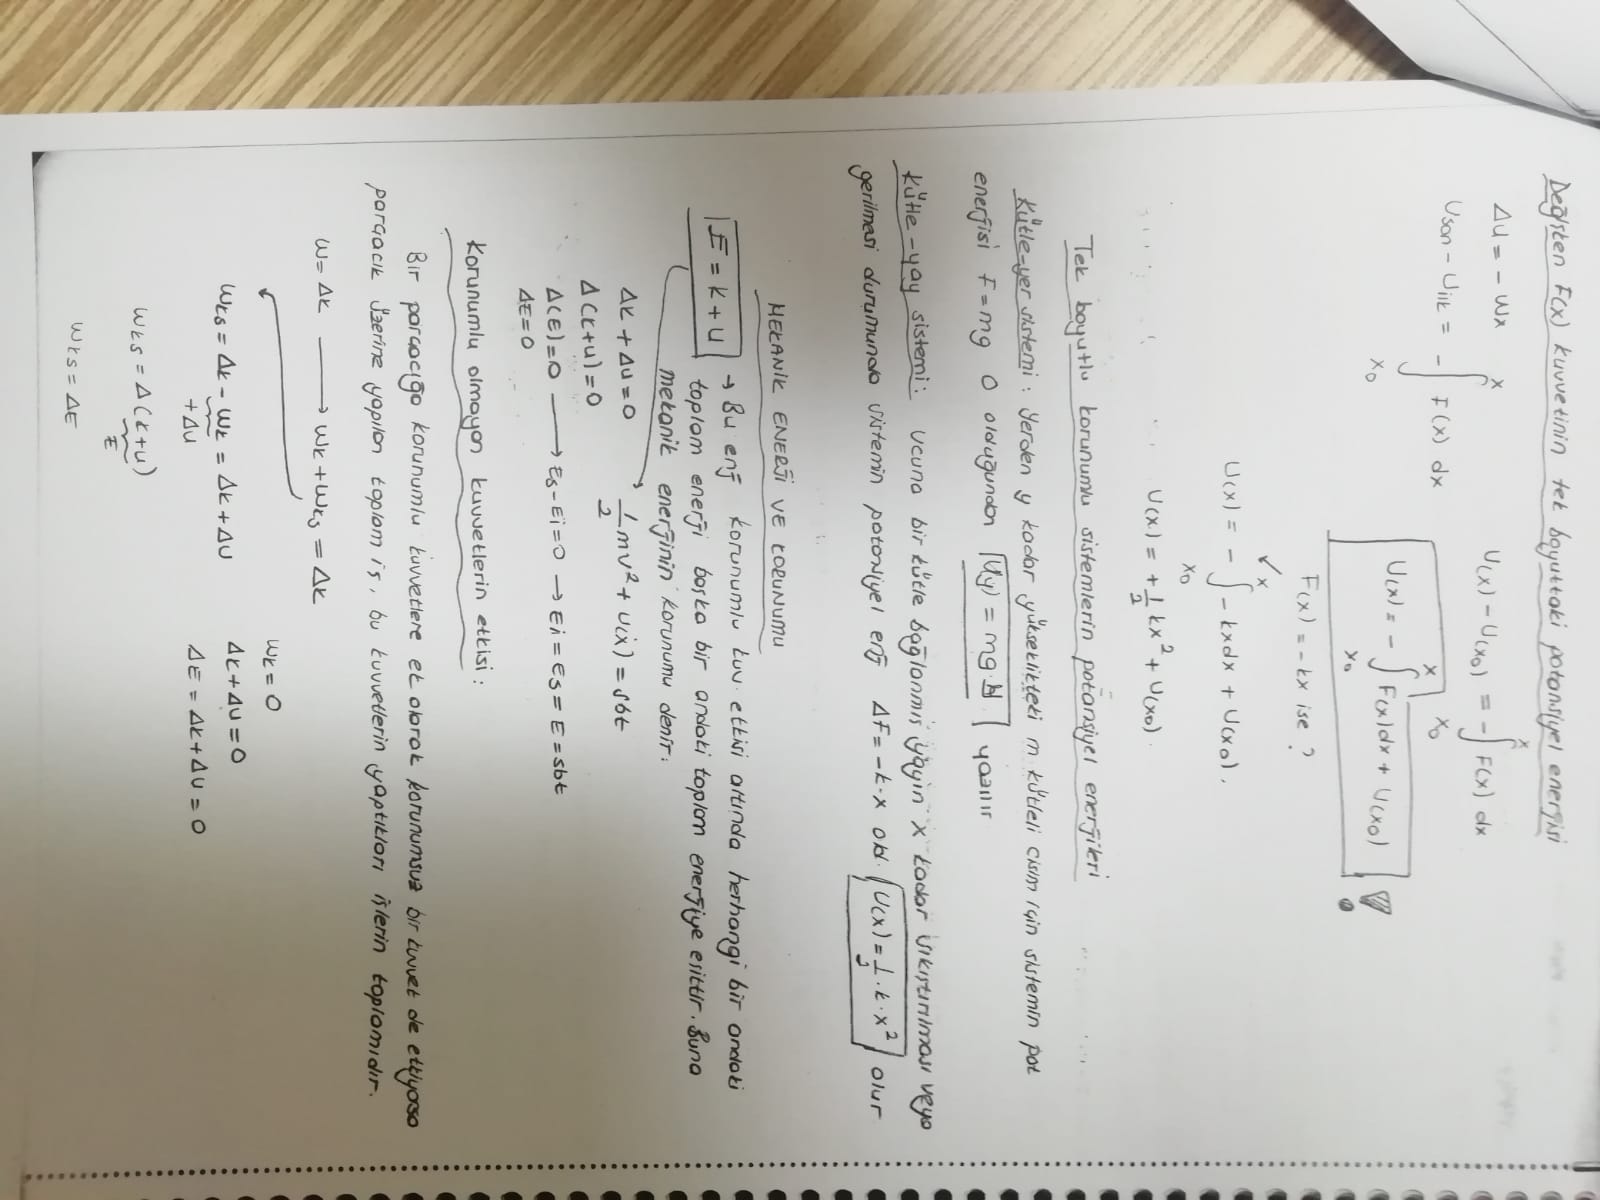 Değişken F(x) kuvvetinin tek boyuttaki potansiyel enerjisi
ΔU = - Wx
Uson - Uilk = - ∫ₓ₀ˣ F(x) dx
U(x) - U(x₀) = - ∫ₓ₀ˣ F(x) dx
U(x) = - ∫ₓ₀ˣ F(x)dx + U(x₀) !
F(x) = -kx ise ?
U(x) = - ∫ₓ₀ˣ - kxdx + U(x₀).
U(x) = + 1/2 kx² + U(x₀).
Tek boyutlu korunumlu sistemlerin potansiyel enerjileri
Kütle-yer sistemi : Yerden y kadar yükseklikteki m kütleli cisim için sistemin pot
enerjisi F=mg 0 olduğundan U(y) = mg yazılır
Kütle-yay sistemi : Ucuna bir kütle bağlanmış yayın x kadar sıkıştırılması veya
gerilmesi durumunda sistemin potansiyel enj ΔF = -k·x old. U(x) = 1/2 · k · x² olur
MEKANİK ENERJİ VE KORUNUMU
E = K + U → Bu enj korunumlu kuv. etkisi altında herhangi bir andaki
toplam enerji başka bir andaki toplam enerjiye eşittir. Buna
mekanik enerjinin korunumu denir.
ΔK + ΔU = 0
1/2 mv² + U(x) = sbt
Δ(K+U) = 0
Δ(E) = 0 → Es - Ei = 0 → Ei = Es = E = sbt
ΔE = 0
Korunumlu olmayan kuvvetlerin etkisi :
Bir parçacığa korunumlu kuvvetlere ek olarak korunumsuz bir kuvvet de etkiyorsa
parçacık üzerine yapılan toplam iş, bu kuvvetlerin yaptıkları işlerin toplamıdır.
W = ΔK → Wk + Wks = ΔK
Wks = Δk - Wk = Δk + ΔU
+ΔU
Wk = 0
ΔK + ΔU = 0
ΔE = ΔK + ΔU = 0
Wks = Δ(K+U)
E
Wks = ΔE